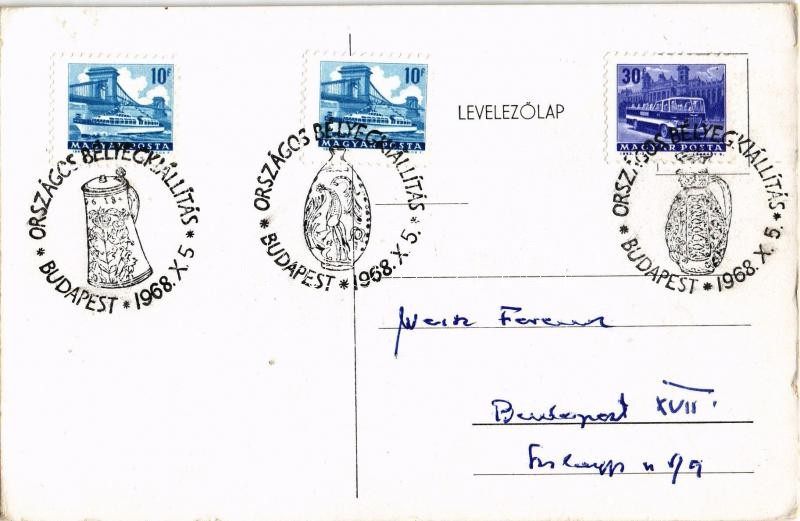 10F
MAGYAR POSTA
10F
MAGYAR POSTA
LEVELEZŐLAP
30F
MAGYAR POSTA
* ORSZÁGOS BÉLYEGKIÁLLÍTÁS *
BUDAPEST * 1968. X. 5.
* ORSZÁGOS BÉLYEGKIÁLLÍTÁS *
BUDAPEST * 1968. X. 5.
* ORSZÁGOS BÉLYEGKIÁLLÍTÁS *
BUDAPEST * 1968. X. 5.
Ferenc
Budapest XVII.